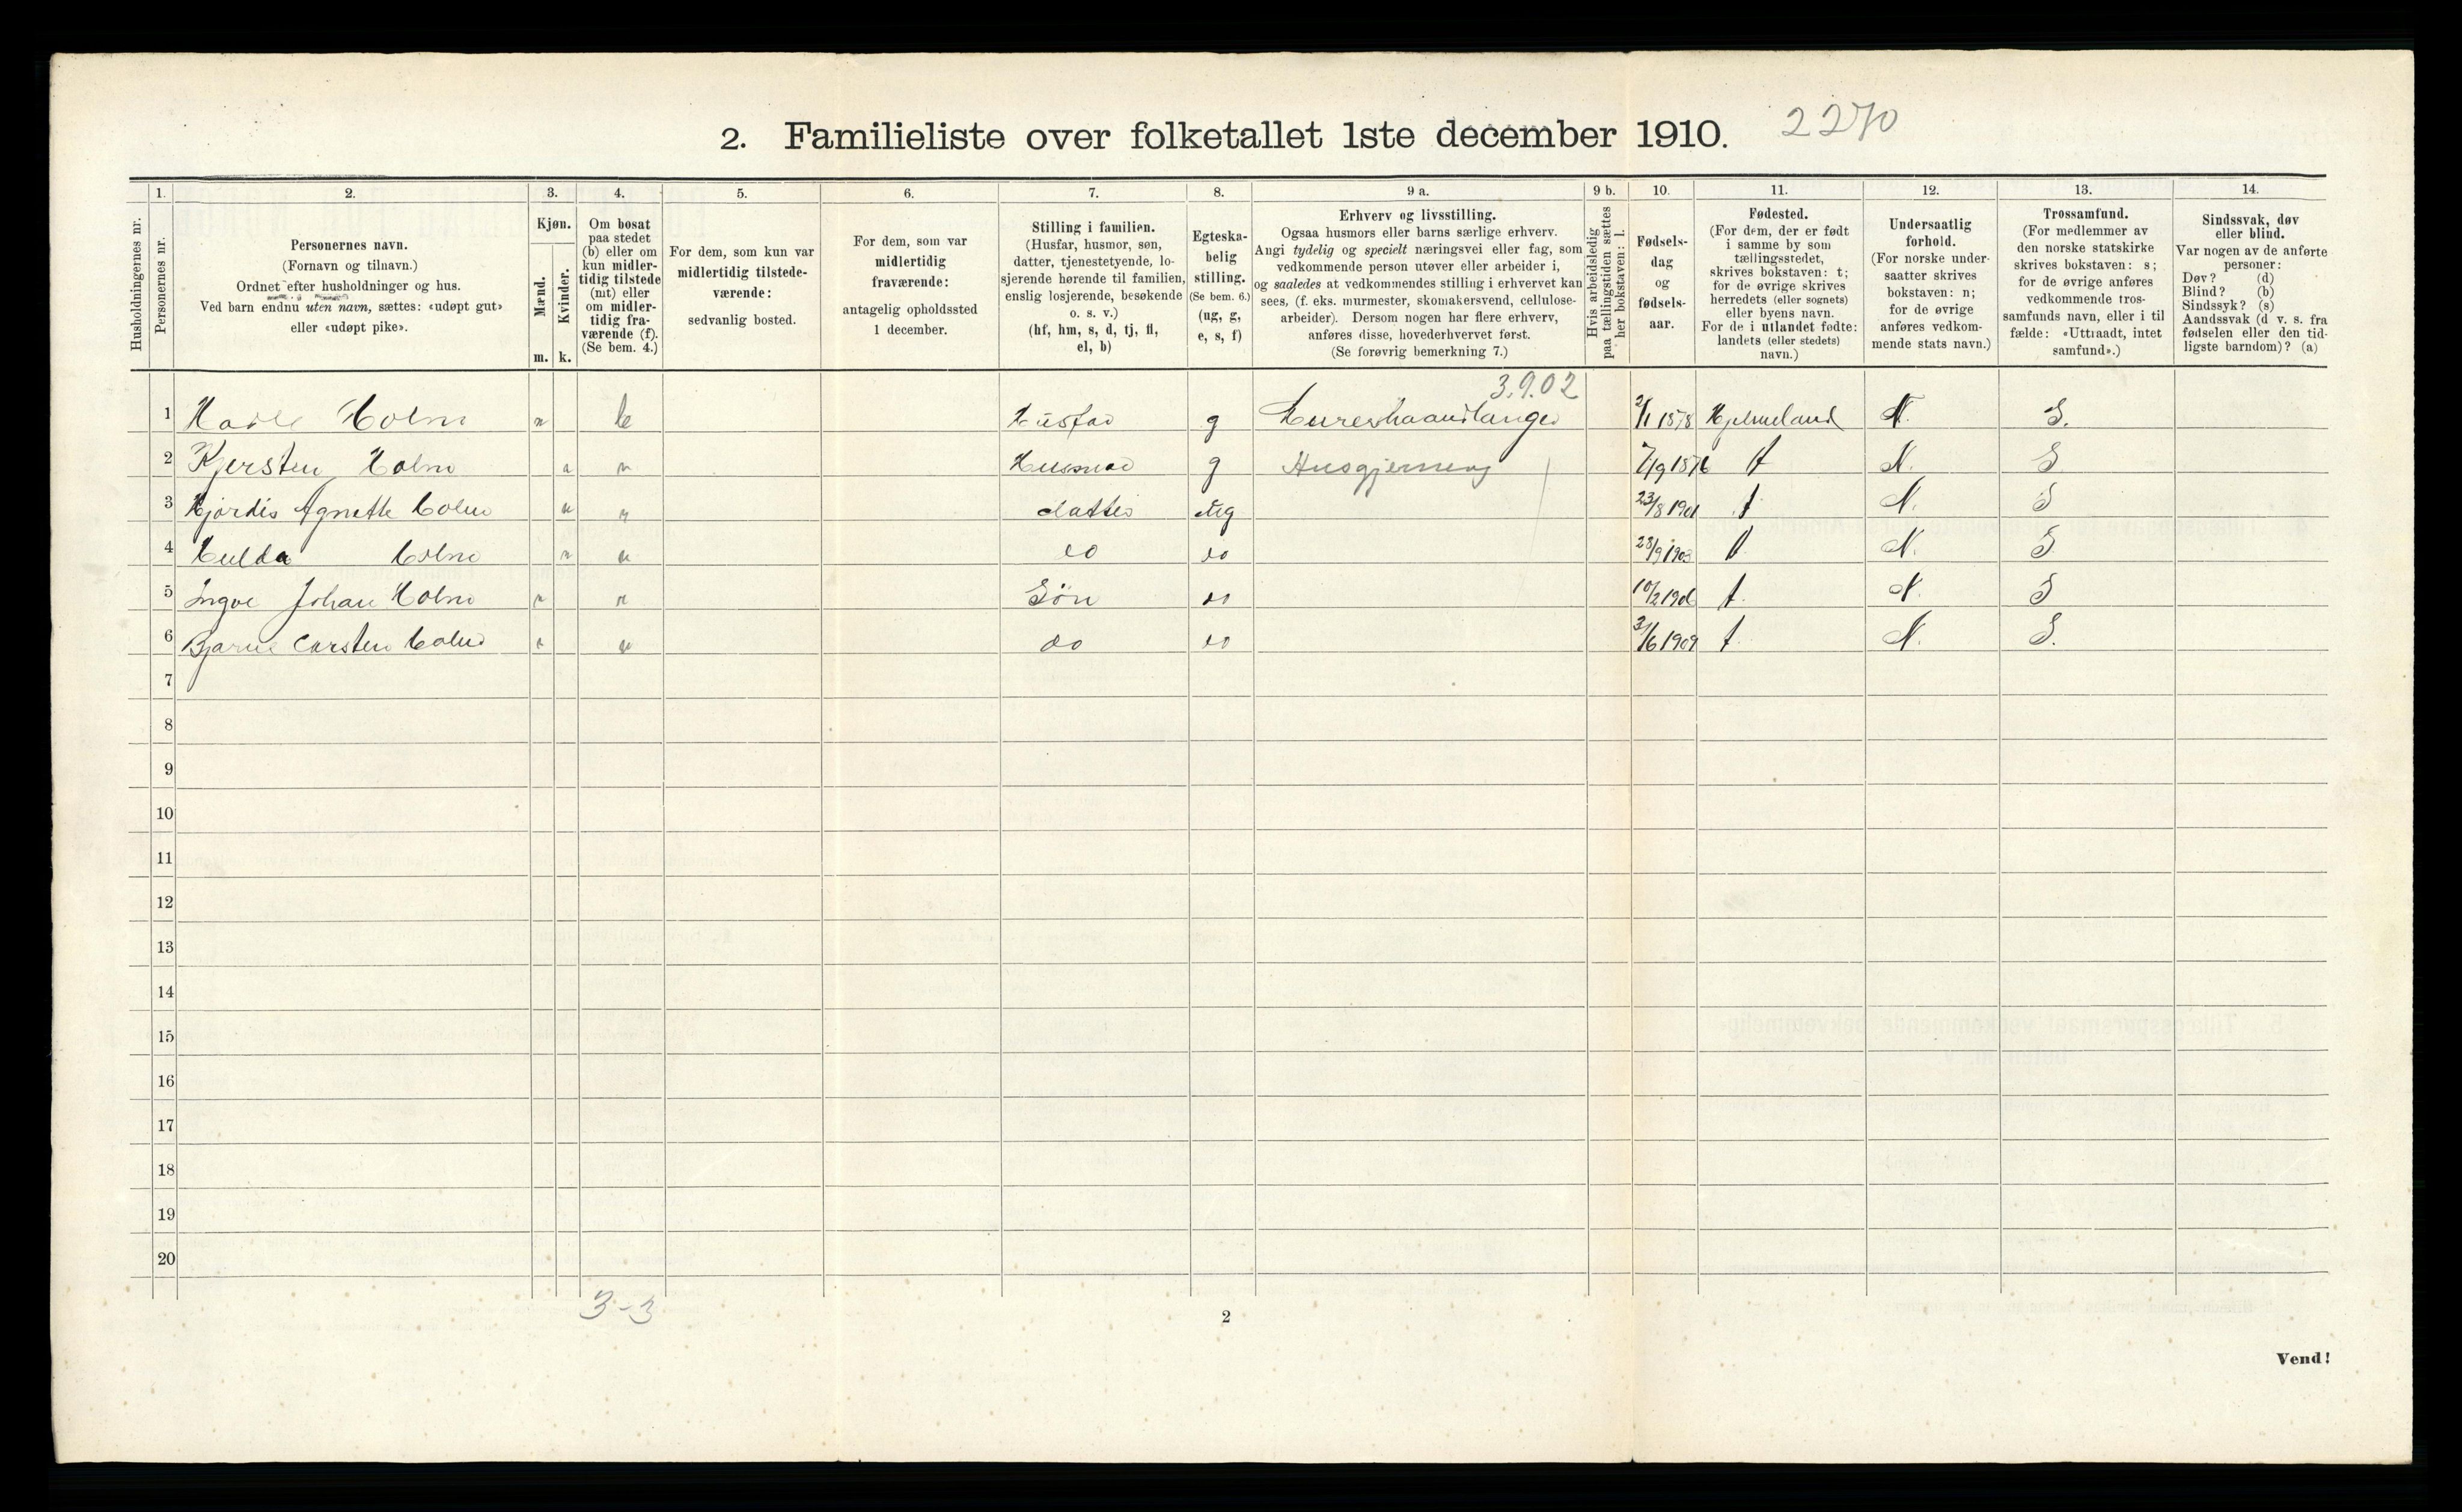 2. Familieliste over folketallet 1ste december 1910. 2270
1. 2. 3. 4. 5. 6. 7. 8. 9 a. 9 b. 10. 11. 12. 13. 14.
Husholdningernes nr.
Personernes nr.
Personernes navn.
(Fornavn og tilnavn.)
Ordnet efter husholdninger og hus.
Ved barn endnu uten navn, sættes: «udøpt gut»
eller «udøpt pike».
Kjøn.
Mænd.
Kvinder.
m. k.
Om bosat
paa stedet
(b) eller om
kun midler-
tidig tilstede
(mt) eller
om midler-
tidig fra-
værende (f).
(Se bem. 4.)
For dem, som kun var
midlertidig tilstede-
værende:
sedvanlig bosted.
For dem, som var
midlertidig
fraværende:
antagelig opholdssted
1 december.
Stilling i familien.
(Husfar, husmor, søn,
datter, tjenestetyende, lo-
sjerende hørende til familien,
enslig losjerende, besøkende
o. s. v.)
(hf, hm, s, d, tj, fl,
el, b)
Egteska-
belig
stilling.
(Se bem. 6.)
(ug, g,
e, s, f)
Erhverv og livsstilling.
Ogsaa husmors eller barns særlige erhverv.
Angi tydelig og specielt næringsvei eller fag, som
vedkommende person utøver eller arbeider i,
og saaledes at vedkommendes stilling i erhvervet kan
sees, (f. eks. murmester, skomakersvend, cellulose-
arbeider). Dersom nogen har flere erhverv,
anføres disse, hovederhvervet først.
(Se forøvrig bemerkning 7.)
Hvis arbeidsledig
paa tællingstiden sættes
her bokstaven: l.
Fødsels-
dag
og
fødsels-
aar.
Fødested.
(For dem, der er født
i samme by som
tællingsstedet,
skrives bokstaven: t;
for de øvrige skrives
herredets (eller sognets)
eller byens navn.
For de i utlandet fødte:
landets (eller stedets)
navn.)
Undersaatlig
forhold.
(For norske under-
saatter skrives
bokstaven: n;
for de øvrige
anføres vedkom-
mende stats navn.)
Trossamfund.
(For medlemmer av
den norske statskirke
skrives bokstaven: s;
for de øvrige anføres
vedkommende tros-
samfunds navn, eller i til
fælde: «Uttraadt, intet
samfund».)
Sindssvak, døv
eller blind.
Var nogen av de anførte
personer:
Døv? (d)
Blind? (b)
Sindssyk? (s)
Aandssvak (d v. s. fra
fødselen eller den tid-
ligste barndom)? (a)
3.9.02
1 Karl Holm " b Husfar g Mureshaandlanger 2/1 1878 Hjelmeland N. S.
2 Kjersten Holm " " Husmor g Husgjerning 7/9 1876 t N. S
3 Hjørdis Agnethe Holm " " datter ug 23/8 1901 t N. S
4 Hulda Holm " " do do 28/9 1903 t N. S
5 Ingve Johan Holm " " Søn do 10/2 1906 t. N. S
6 Bjarne Carsten Holm " " do do 3/6 1909 t. N. S.
7
8
9
10
11
12
13
14
15
16
17
18
19
20
3-3
2
Vend!